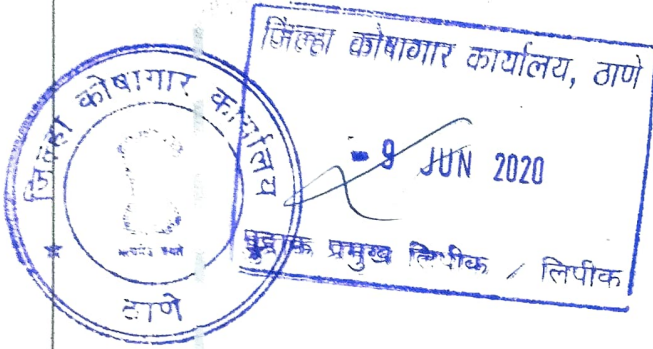 जिल्हा कोषागार कार्यालय
ठाणे
जिल्हा कोषागार कार्यालय, ठाणे
- 9 JUN 2020
मुद्रांक प्रमुख लिपीक / लिपीक